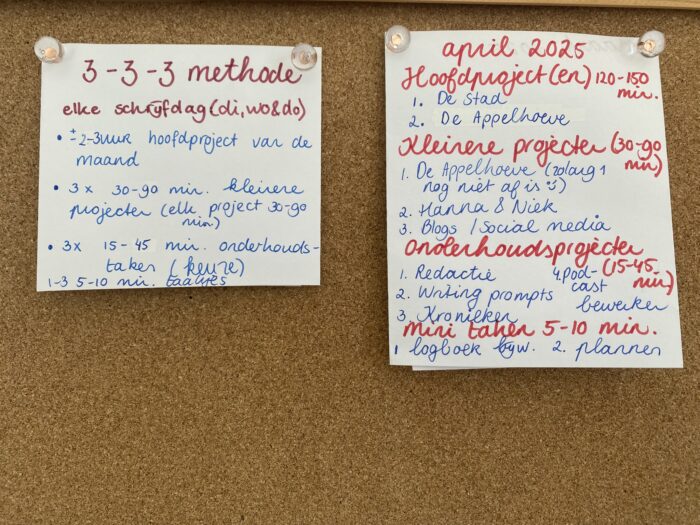 3-3-3 methode
elke schrijfdag (di, wo & do)
• ± 2-3 uur hoofdproject van de
maand
• 3x 30-90 min. kleinere
projecten (elk project 30-90
min.)
• 3x 15-45 min. onderhouds-
taken (keuze)
1-3 5-10 min. taakjes
april 2025
Hoofdproject(en) 120-150
min.
1. De Stad
2. De Appelhoeve
Kleinere projecten (30-90
min)
1. De Appelhoeve (zolang 1
nog niet af is :))
2. Hanna & Niek
3. Blogs / Social media
Onderhoudsprojecten
(15-45
min)
1. Redactie
2. Writing prompts
3. Kronieken
4. Pod-
cast
bewerken
mini taken 5-10 min.
1 logboek bijw. 2. plannen